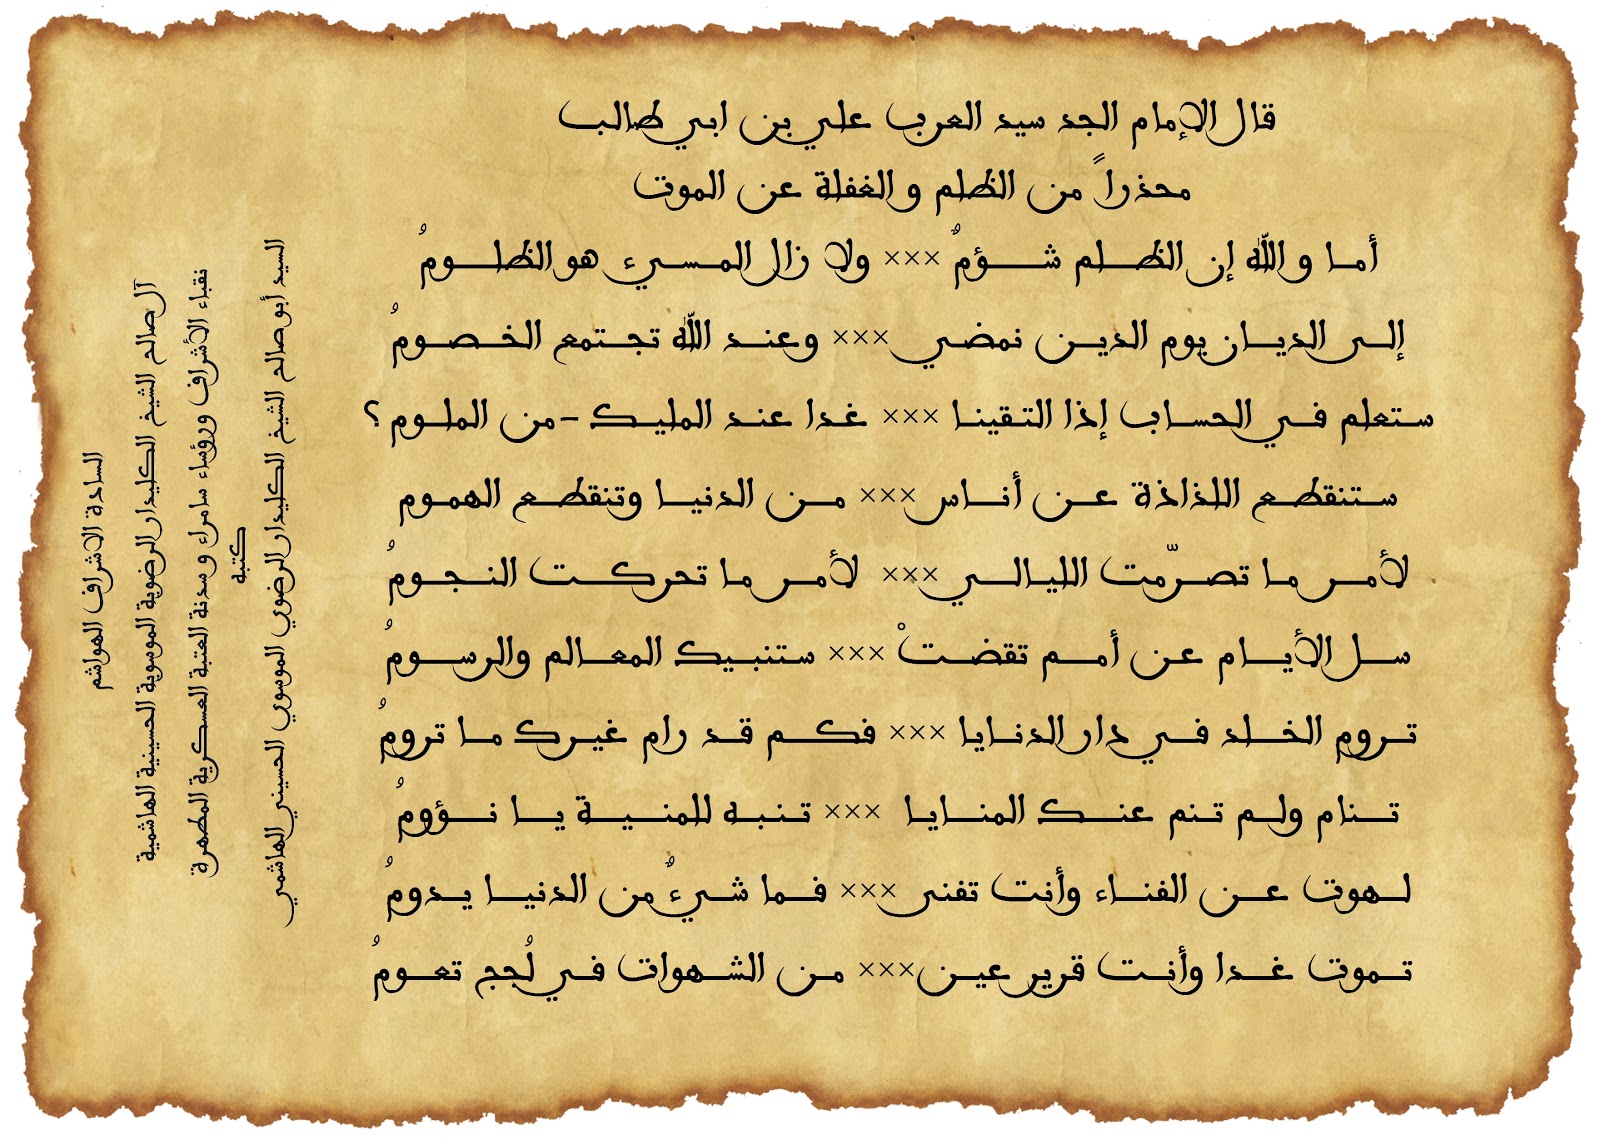 قال الإمام الجد سيد العرب علي بن ابي طالب
محذراً من الظلم و الغفلة عن الموت
أما و الله إن الظلم شؤمٌ ××× ولا زال المسيء هو الظلومُ
إلى الديان يوم الدين نمضي××× وعند الله تجتمع الخصومُ
ستعلم في الحساب إذا التقينا ××× غدا عند المليك -من الملوم ؟
ستنقطع اللذاذة عن أناس××× من الدنيا وتنقطع الهموم
لأمر ما تصرّمت الليالي ××× لأمر ما تحركت النجومُ
سل الأيام عن أمم تقضتْ ××× ستنبيك المعالم والرسومُ
تروم الخلد في دار الدنايا ××× فكم قد رام غيرك ما ترومُ
تنام ولم تنم عنك المنايا ××× تنبه للمنية يا نؤومُ
لهوت عن الفناء وأنت تفنى××× فما شيءٌ من الدنيا يدومُ
تموت غدا وأنت قرير عين××× من الشهوات في لُجج تعومُ
السادة الاشراف الهواشم
آل صالح الشيخ الكليدار الرضوية الموسوية الحسينية الهاشمية
نقباء الأشراف ورؤساء سامراء و سدنة العتبة العسكرية المطهرة
كتبة
السيد أبو صالح الشيخ الكليدار الرضوي الموسوي الحسيني الهاشمي